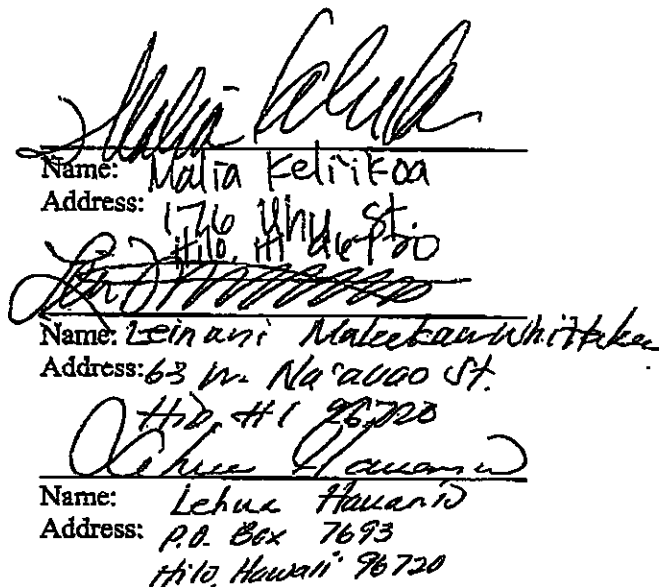 Name: Malia Keli'ikoa
Address: 176 Uhu St.
Hilo, HI 96720
Name: Leinani
Address: 63 W. Na'auao St.
Hilo, HI 96720
Name: Lehua Hauanio
Address: P.O. Box 7693
Hilo, Hawaii 96720